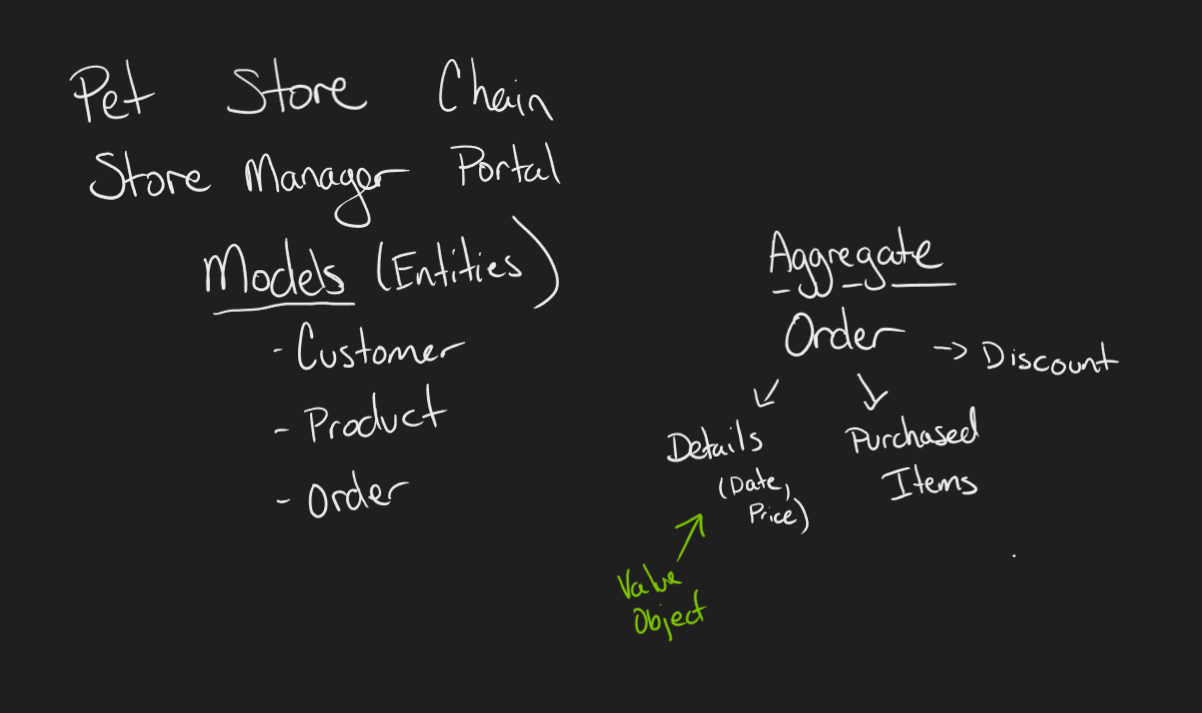 Pet Store Chain
Store Manager Portal
Models (Entities)
- Customer
- Product
- Order
Aggregate
Order -> Discount
Details
(Date,
Price)
Purchased
Items
Value
Object